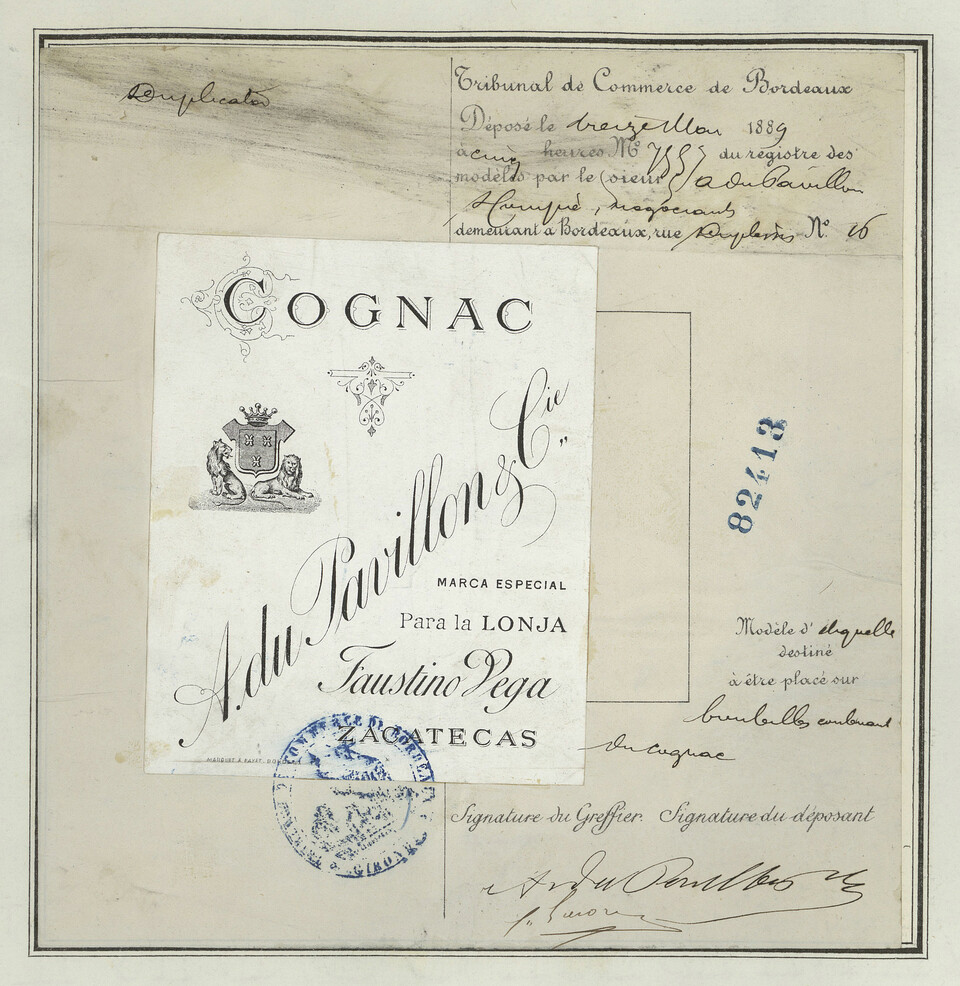 Duplicata
Tribunal de Commerce de Bordeaux
Déposé le treize Mai 1889
à cinq heures No du régistre des
modèles par le sieur A du Pavillon
& Compie, négociants
demeurant à Bordeaux, rue Duplessis No. 16
COGNAC
A. du Pavillon & Cie
MARCA ESPECIAL
Para la LONJA
Faustino Vega
ZACATECAS
82413
Modèle d'étiquette
destiné
à être placé sur
bouteilles contenant
du cognac
COMMERCE DE BORDEAUX
GIRONDE
Signature du Greffier. Signature du déposant
A du Pavillon